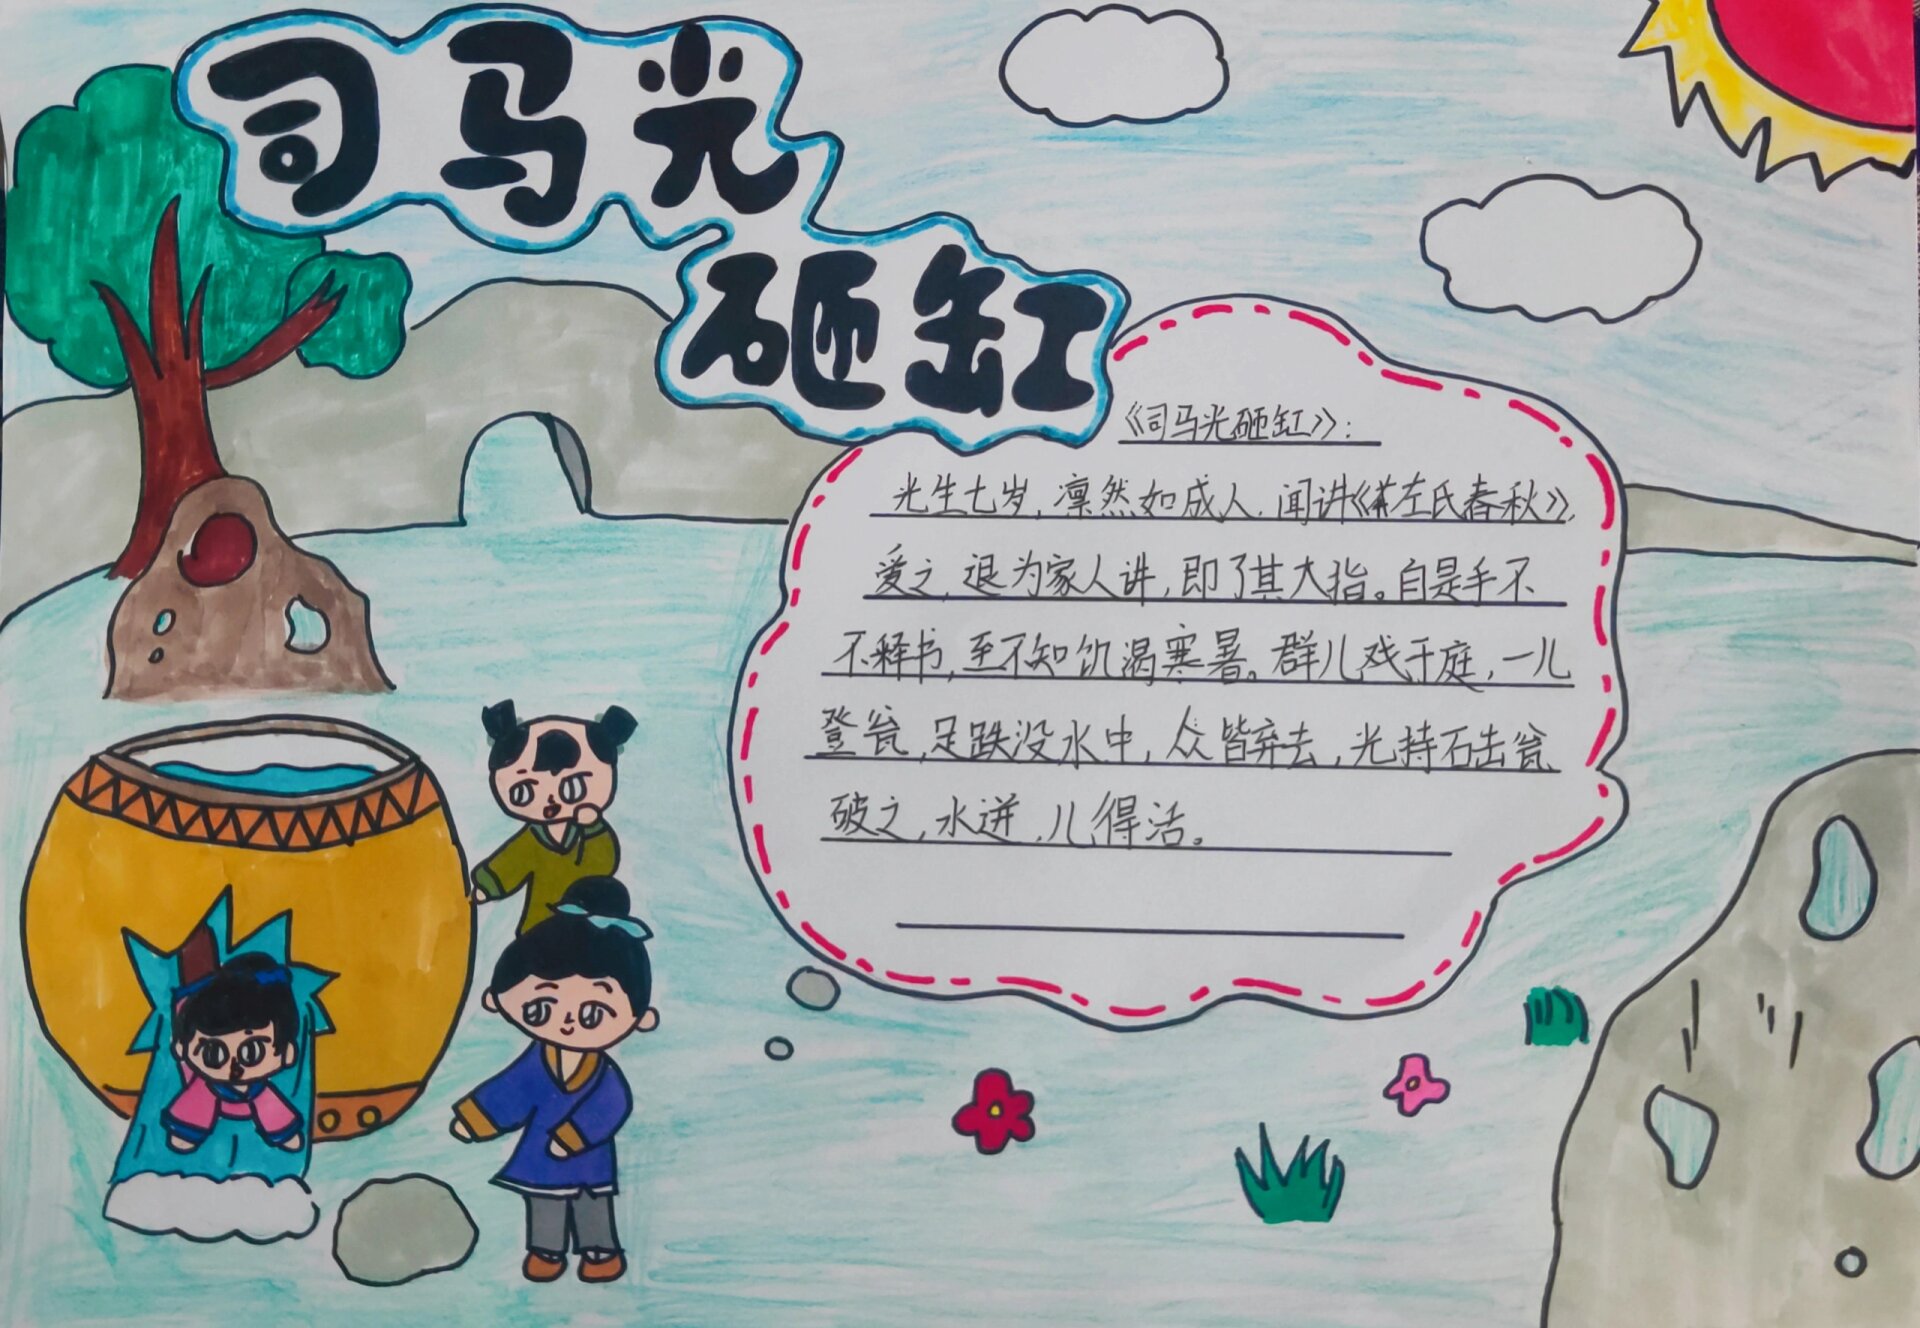 司马光
砸缸
《司马光砸缸》:
光生七岁,凛然如成人.闻讲《左氏春秋》,
爱之,退为家人讲,即了其大指。自是手不
不释书,至不知饥渴寒暑。群儿戏于庭,一儿
登瓮,足跌没水中,众皆弃去,光持石击瓮
破之,水迸,儿得活。